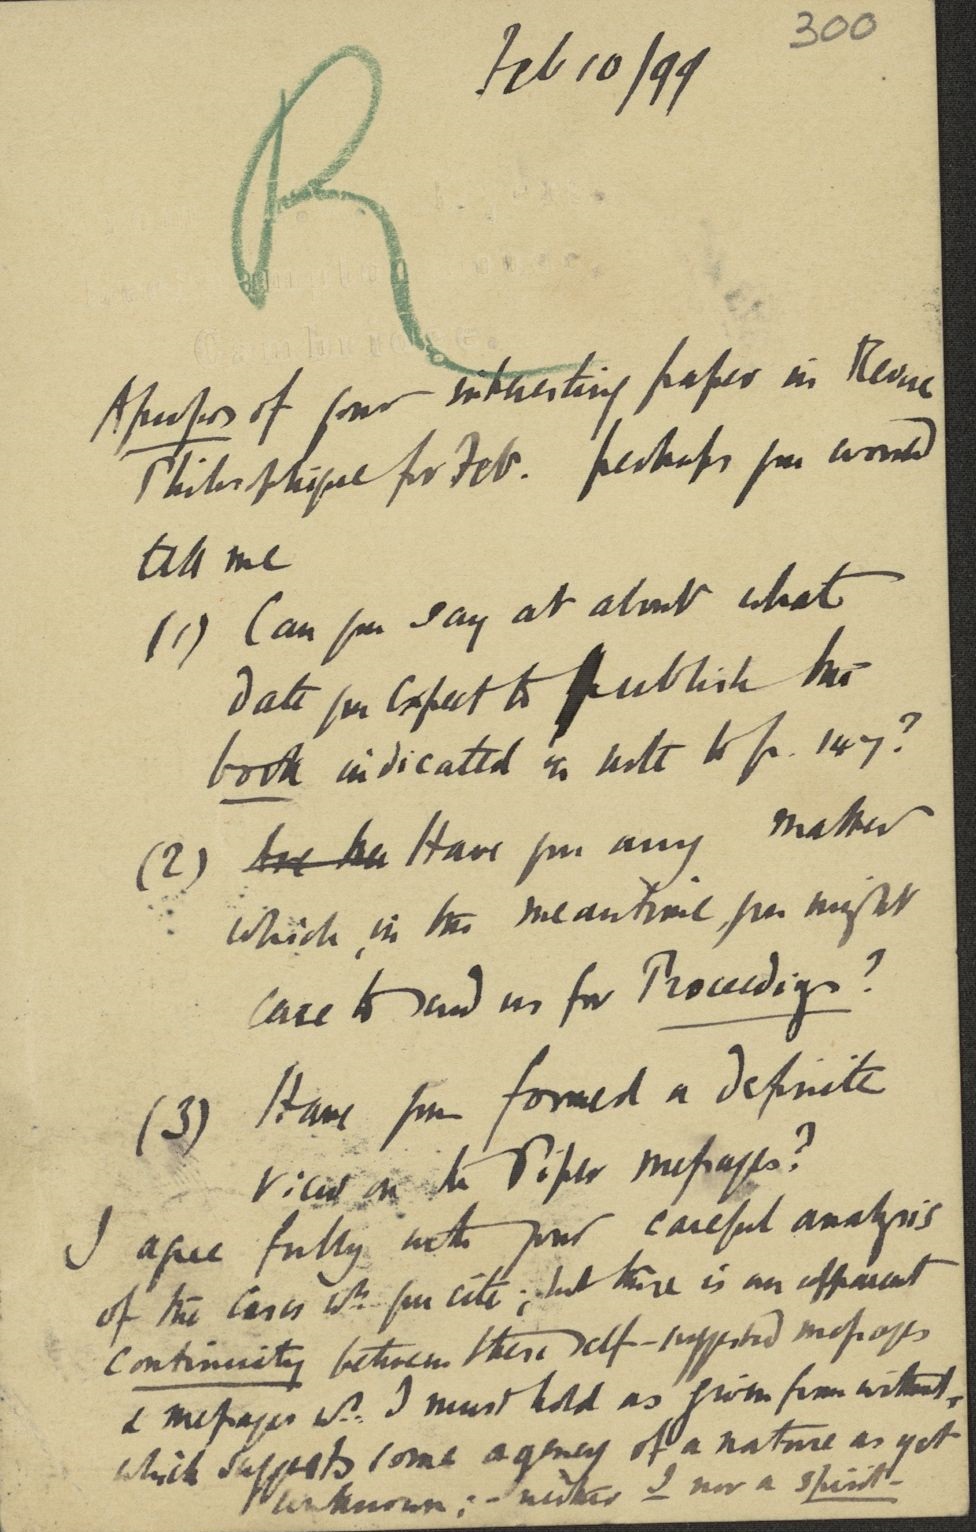 300
Feb 10/99
R
Apropos of your interesting paper in Revue
Philosophique for Feb. perhaps you would
tell me
(1) Can you say at about what
date you expect to publish the
book indicated in note to p. 147?
(2) Have you any matter
which, in the meantime, you might
care to send us for Proceedings?
(3) Have you formed a definite
view on the Piper messages?
I agree fully with your careful analysis
of the cases wh. you cite; but there is an apparent
continuity between these self-suggested messages
& messages wh. I must hold as given from without,
which suggests some agency of a nature as yet
unknown; - neither I nor a spirit-